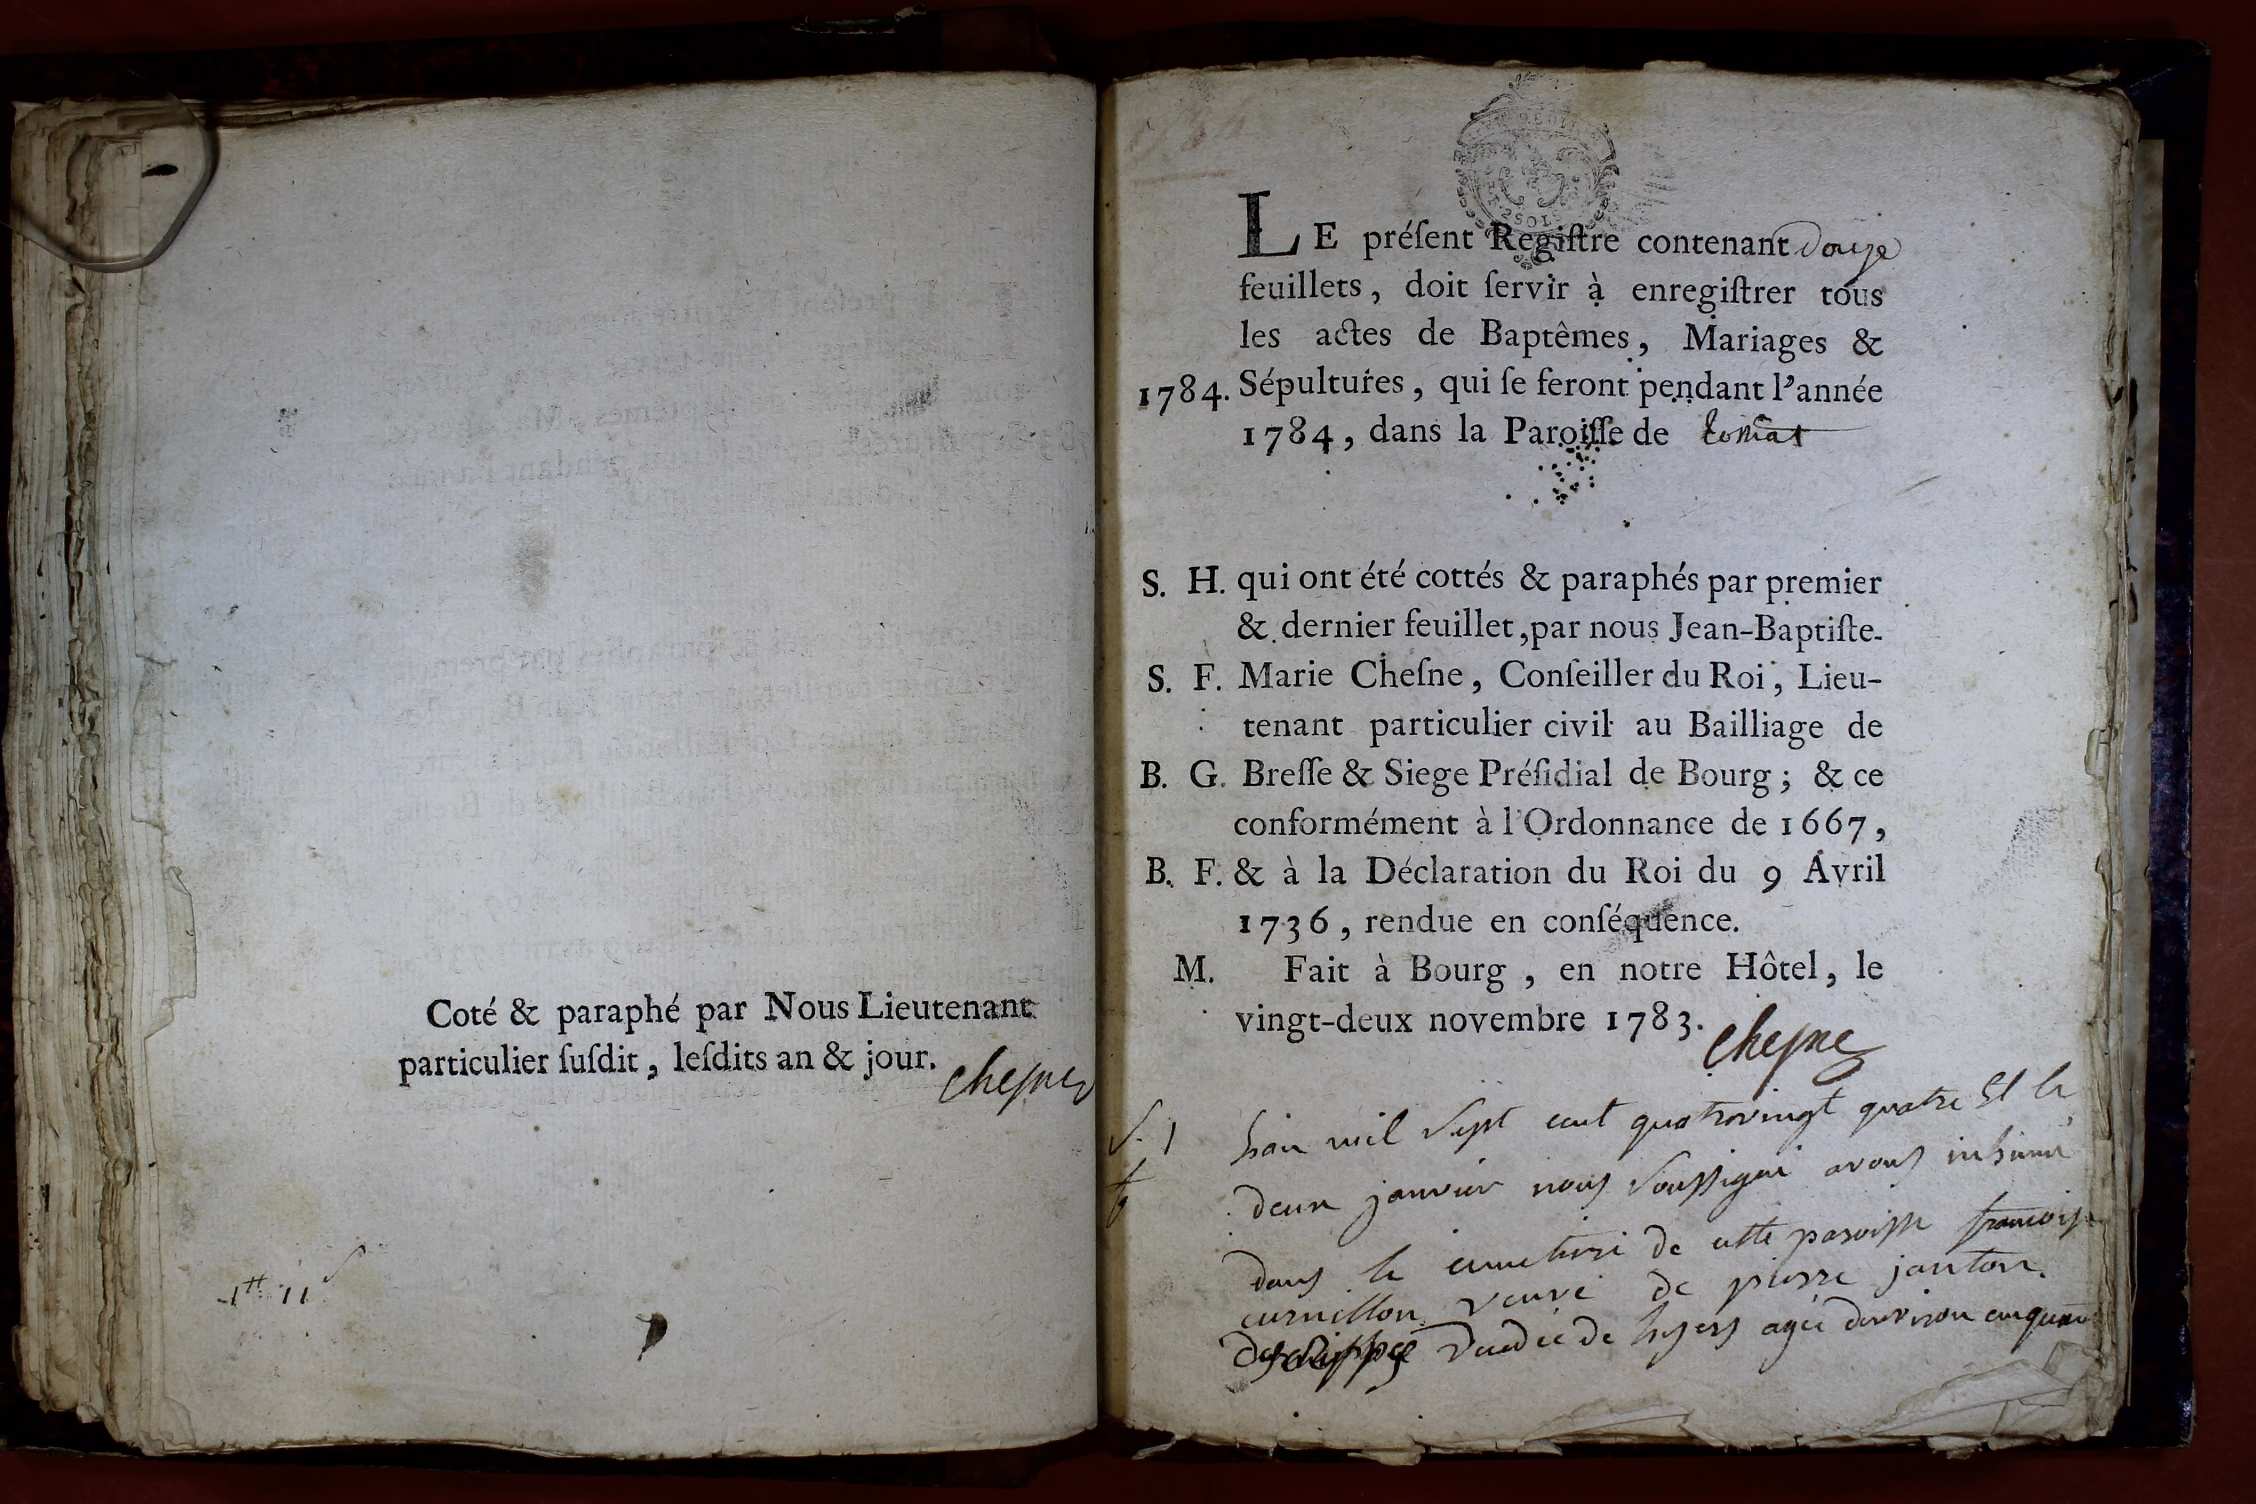 Coté & paraphé par Nous Lieutenant
particulier ſuſdit, leſdits an & jour.
Cheſne
1tt 11 s
2 SOLS
LE préſent Regiſtre contenant douze
feuillets, doit ſervir à enregiſtrer tous
les actes de Baptêmes, Mariages &
1784. Sépultures, qui ſe feront pendant l'année
1784, dans la Paroiſſe de
S. H. qui ont été cottés & paraphés par premier
& dernier feuillet, par nous Jean-Baptiſte-
S. F. Marie Cheſne, Conſeiller du Roi, Lieu-
tenant particulier civil au Bailliage de
B. G. Breſſe & Siege Préſidial de Bourg; & ce
conformément à l'Ordonnance de 1667,
B. F. & à la Déclaration du Roi du 9 Avril
1736, rendue en conſéquence.
M. Fait à Bourg, en notre Hôtel, le
vingt-deux novembre 1783.
Cheſne
S. 1 lan mil sept cent quatrevingt quatre et le
deux janvier nous soussigné avons inhumé
dans le cimetiere de cette paroisse francoise
curnillon veuve de pierre janton
agée denviron cinquante